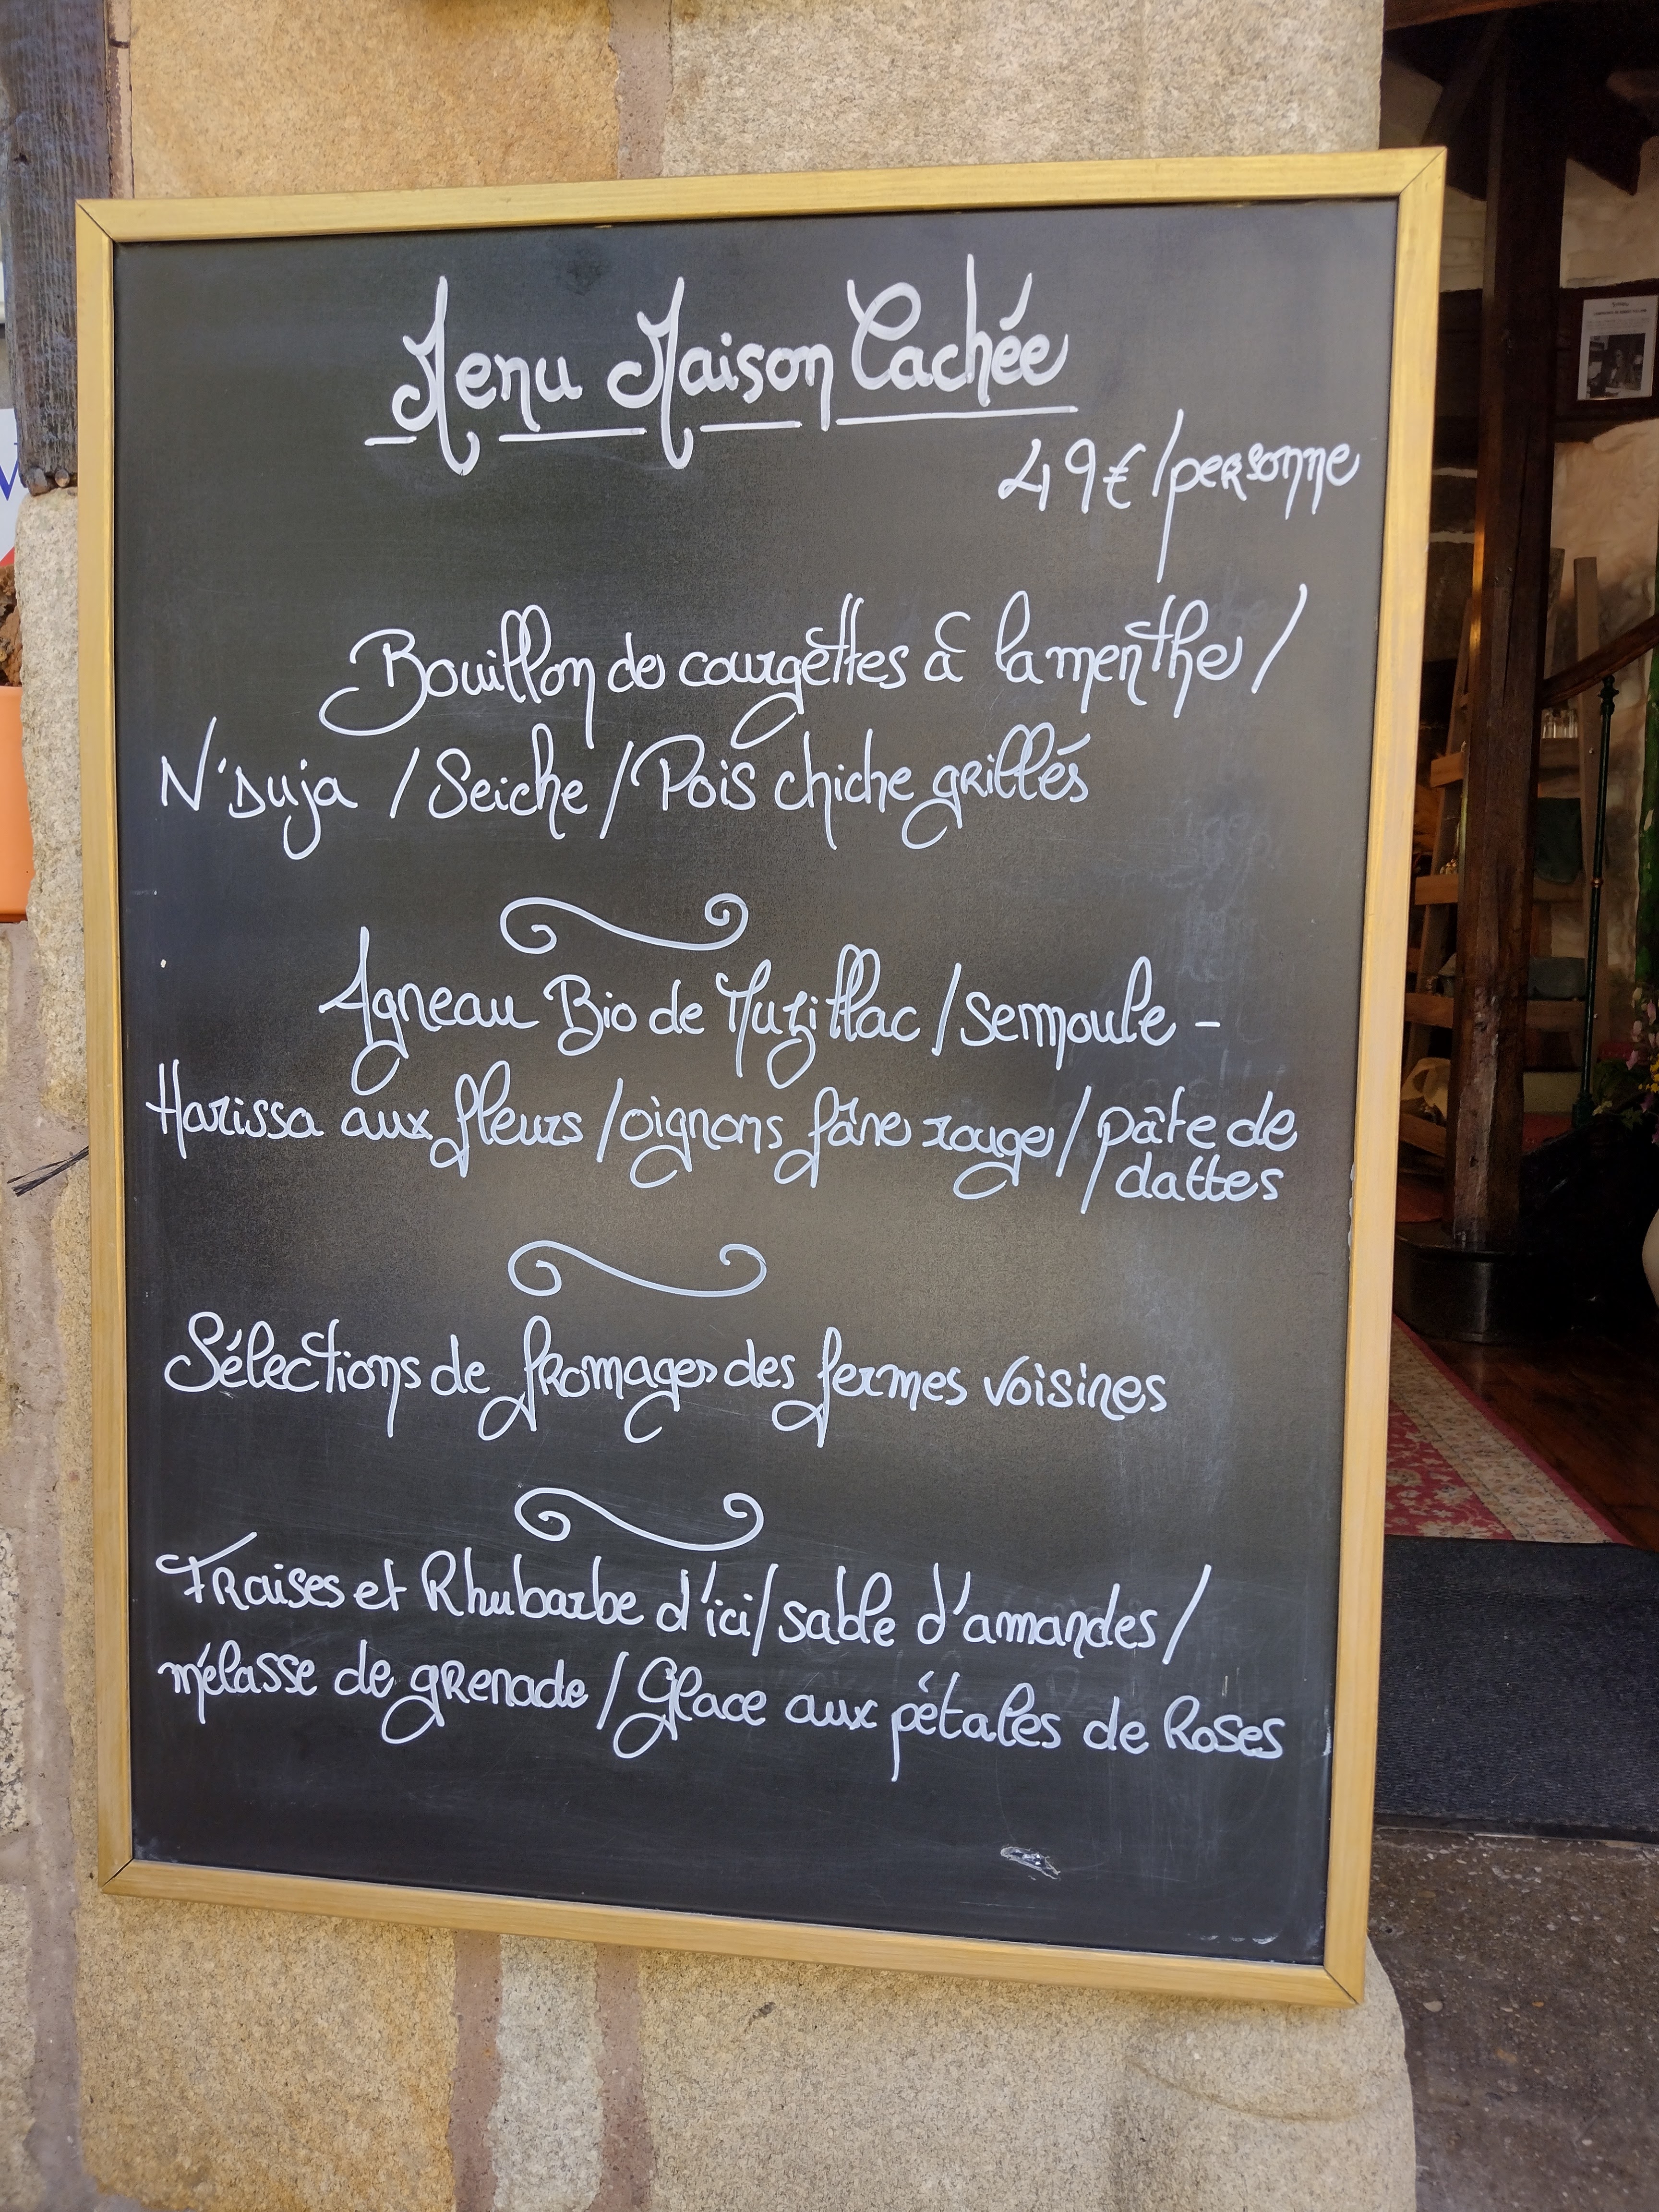 Menu Maison Cachée
49€/personne
Bouillon de courgettes à la menthe/
N'Duja / Seiche / Pois chiche grillés
Agneau Bio de Muzillac / semoule -
Harissa aux fleurs / oignons fâne rouge / pâte de
dattes
Sélections de fromages des fermes voisines
Fraises et Rhubarbe d'ici / sable d'amandes /
mélasse de grenade / Glace aux pétales de Roses